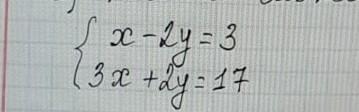 x - 2y = 3
3x + 2y = 17